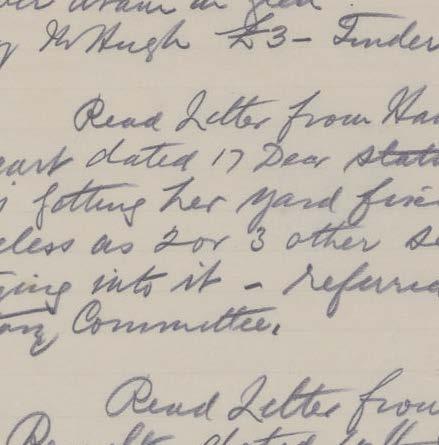 y McHugh £3 - Tender
Read Letter from Han
eart dated 17 Decr stat
getting her yard
eless as 2 or 3 other se
ying into it - referred
tary Committee.
Read Letter from
dated